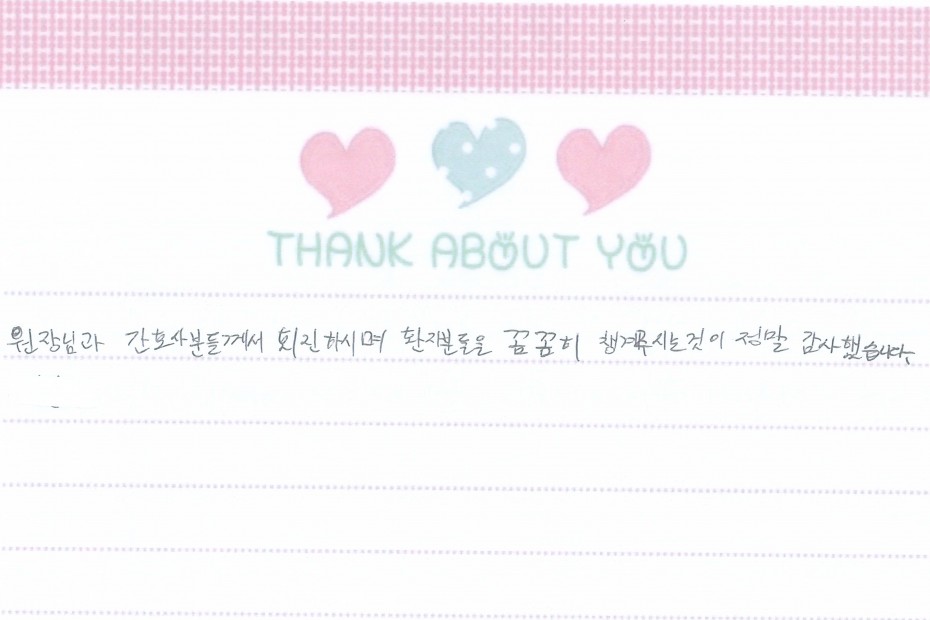 THANK ABOUT YOU
원장님과 간호사분들께서 회진하시며 환자분들을 꼼꼼히 챙겨주시는것이 정말 감사했습니다.